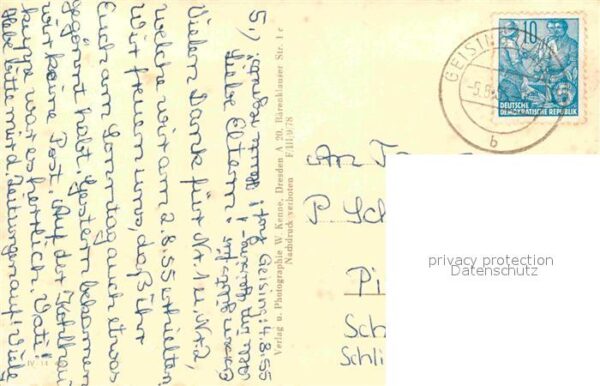 5.) Geising, 4.8.55
Liebe Eltern!
Vielen Dank für Nr. 1 u. Nr 2,
welche wir am 2.8.55 erhielten.
Wir freuen uns, daß ihr
Euch am Sonntag auch etwas
gegönnt habt. Gestern bekamen
wir keine Post. Auf der Kohlhau
kuppe war es herrlich. Vati!
Hebe bitte mir d. Zeitungen auf! Viele
Verlag u. Photographie W. Kenne, Dresden A 20, Bärenklauser Str. 1 c
Nachdruck verboten F/III/9/78
IV 14
GEISING
-5.8.55
b
10
DEUTSCHE
DEMOKRATISCHE REPUBLIK
5
An
P. Sch
Pi
Sch
Schli
privacy protection
Datenschutz